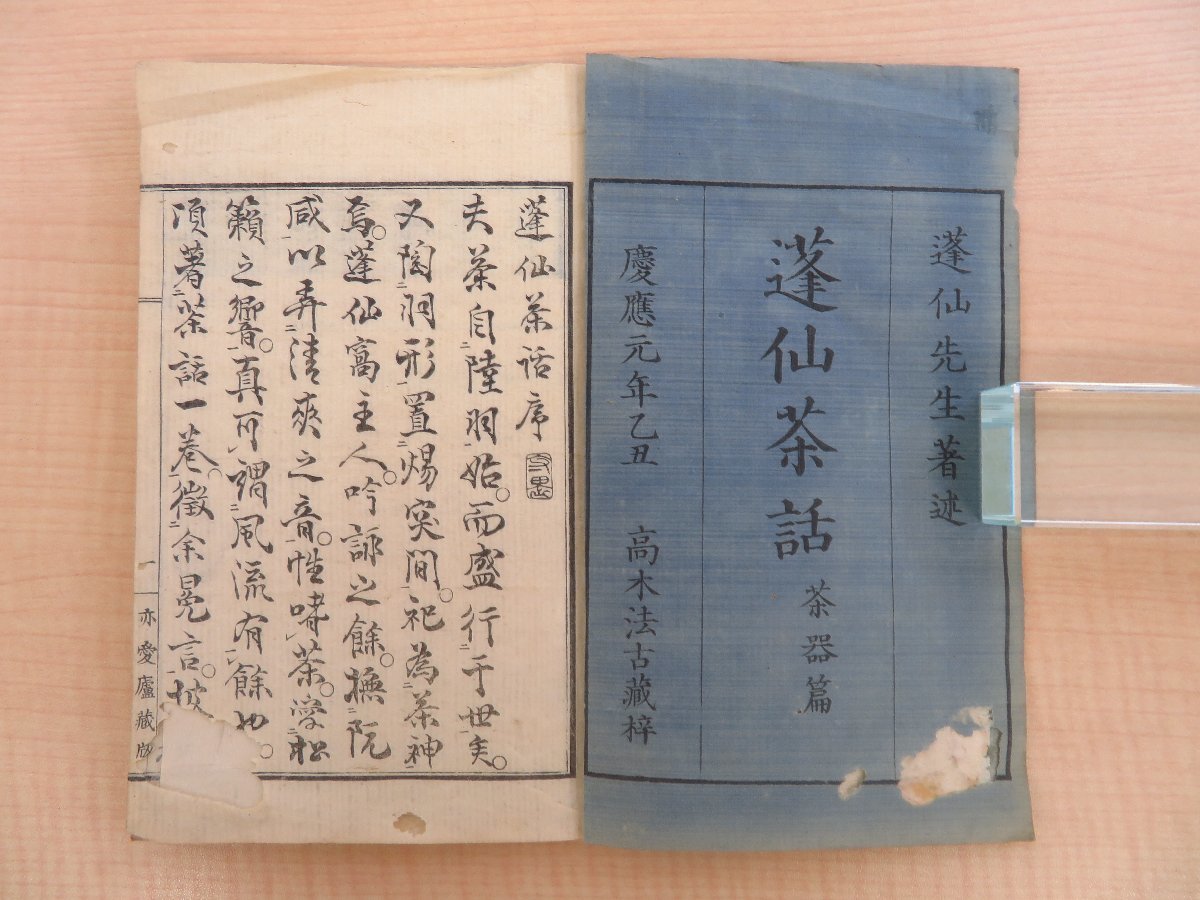 蓬仙先生著述
蓬仙茶話 茶器篇
慶應元年乙丑 高木法古藏梓
蓬仙茶話序
夫茶自陸羽始。而盛行于世矣。
又陶羽形置煬突間。祀為茶神
焉。蓬仙窩主人。吟詠之餘。撫阮
咸以弄清爽之音。性嗜茶。愛松
籟之響。真可謂風流有餘也。
頃著茶話一卷。徵余冕言。披
一
亦愛廬藏版